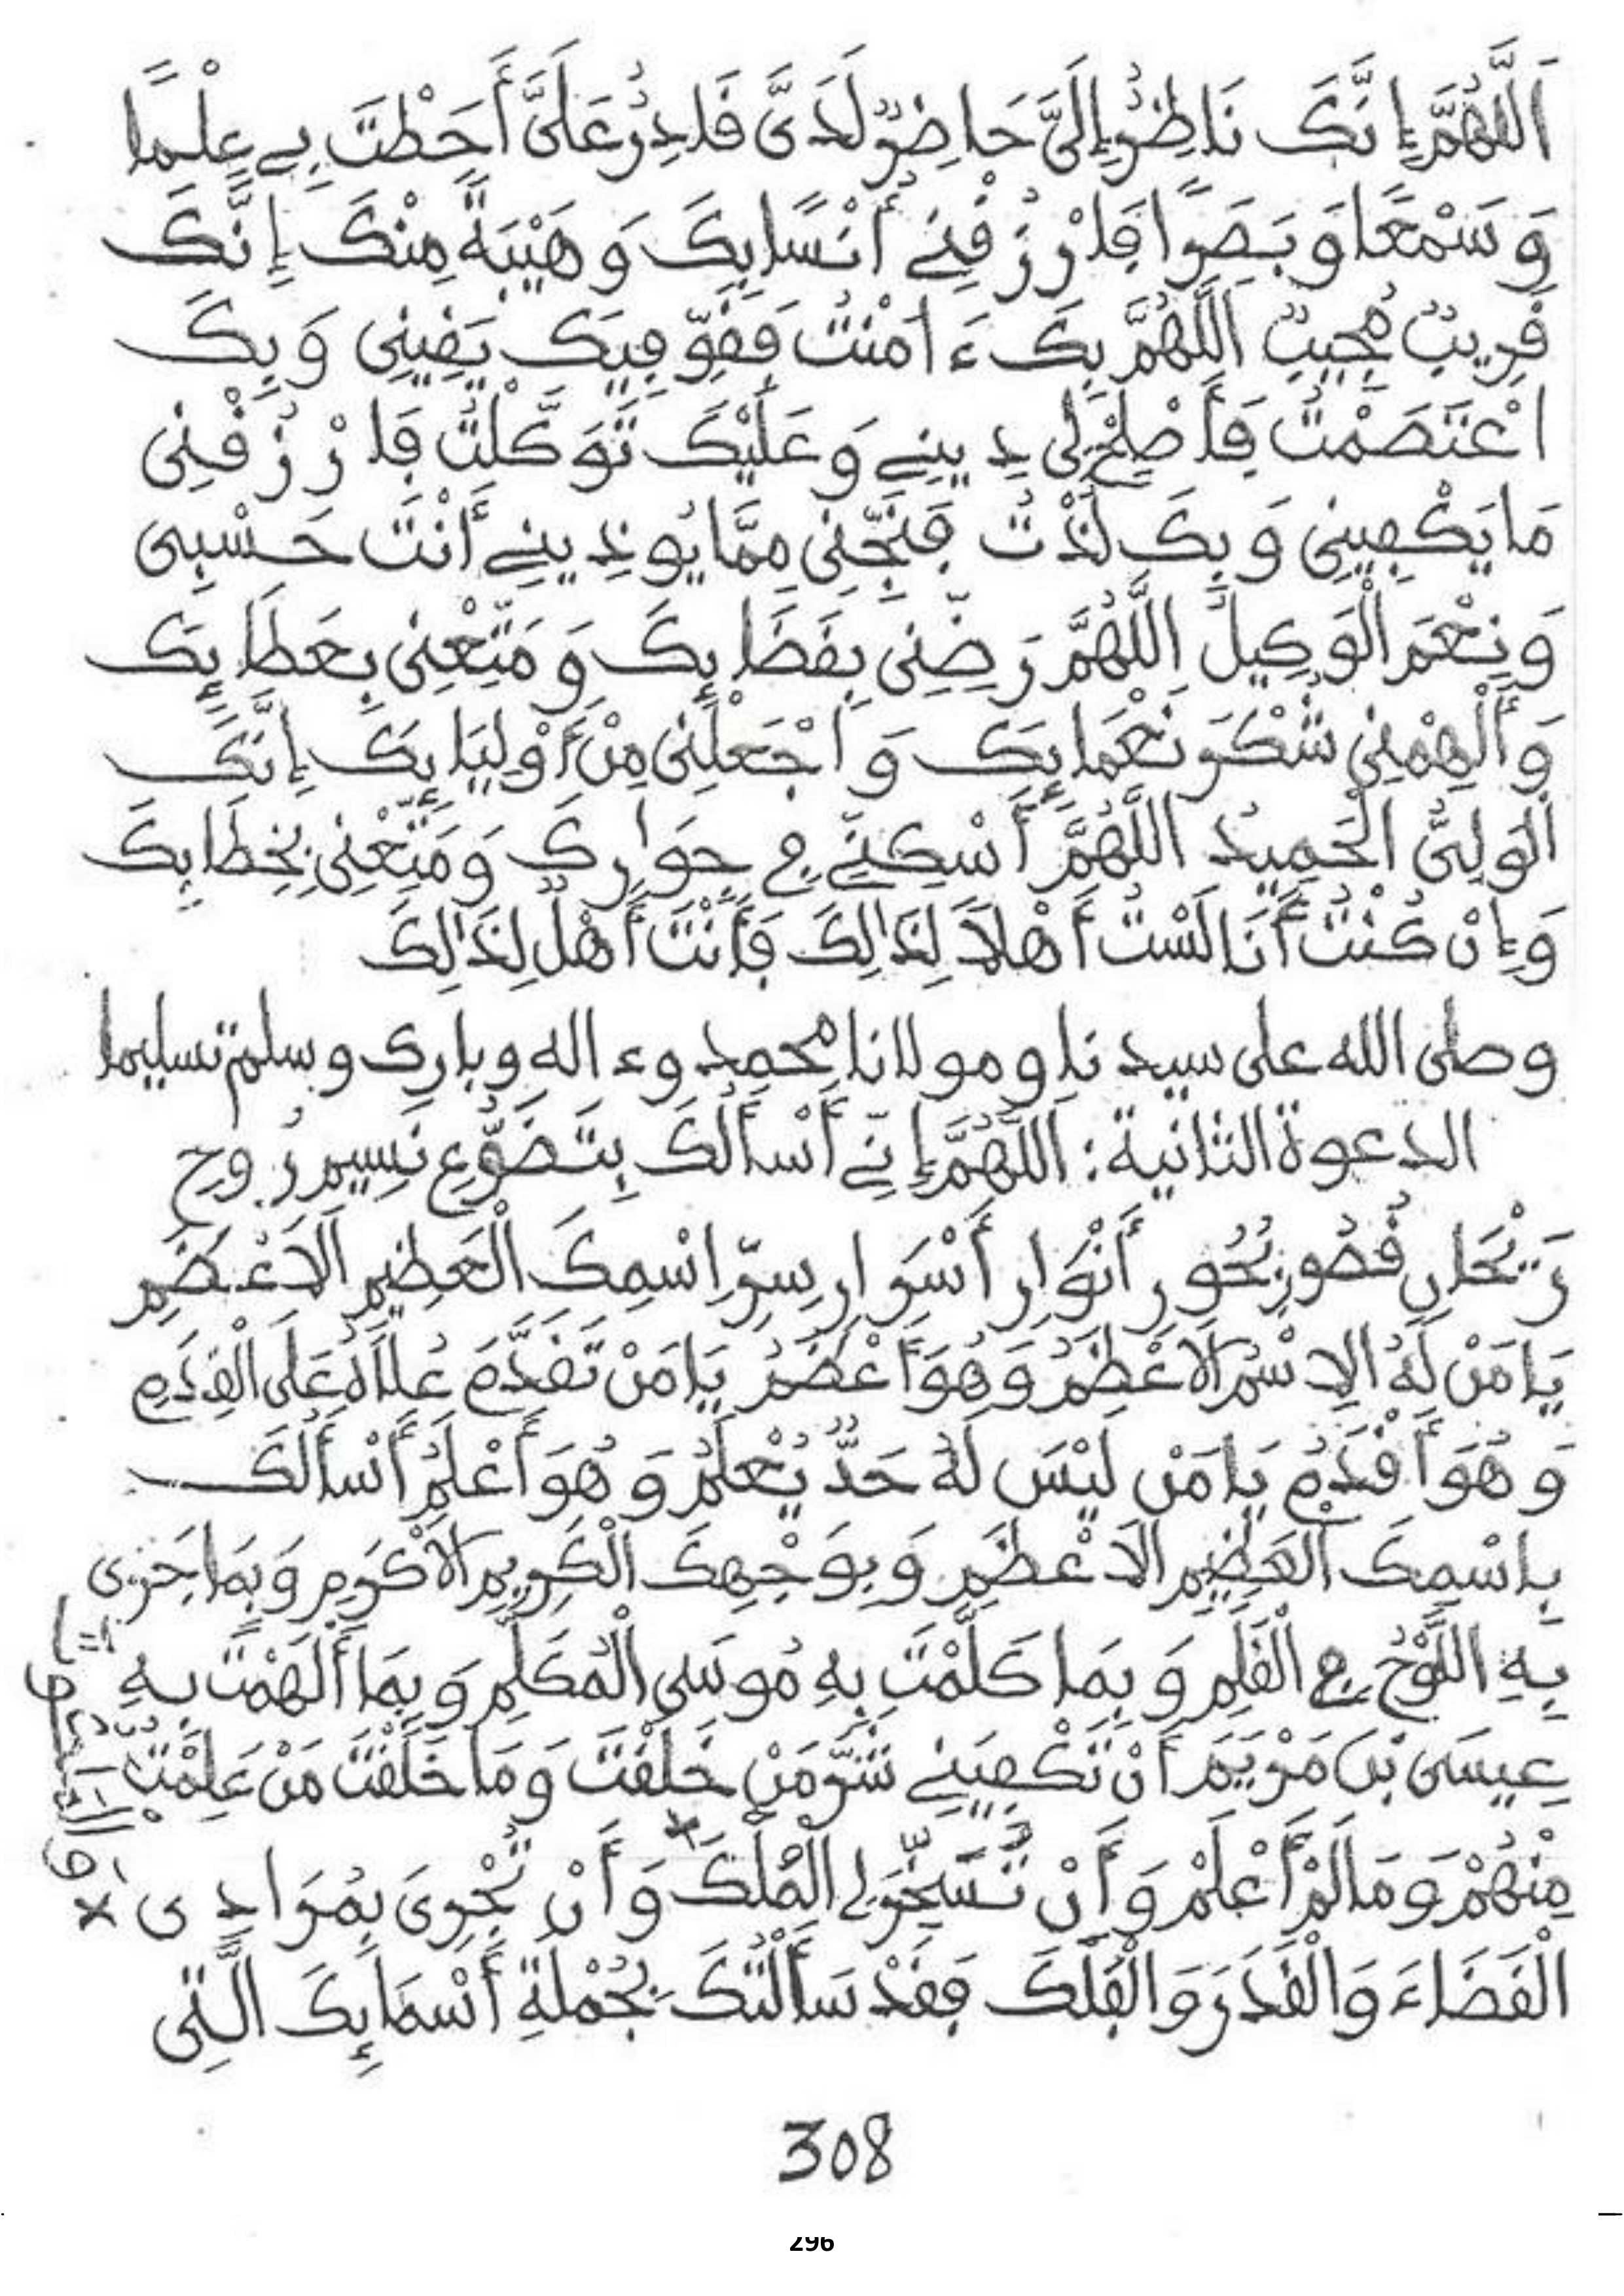 اَللَّهُمَّ إِنَّكَ نَاظِرٌ إِلَيَّ حَاضِرٌ لَدَيَّ قَادِرٌ عَلَيَّ أَحَطْتَ بِي عِلْمًا
وَسَمْعًا وَبَصَرًا فَارْزُقْنِي أُنْسًا بِكَ وَهَيْبَةً مِنْكَ إِنَّكَ
قَرِيبٌ مُجِيبٌ اللَّهُمَّ بِكَ ءَامَنْتُ فَقَوِّ فِيكَ يَقِينِي وَبِكَ
اعْتَصَمْتُ فَأَصْلِحْ لِي دِينِي وَعَلَيْكَ تَوَكَّلْتُ فَارْزُقْنِي
مَا يَكْفِينِي وَبِكَ لُذْتُ فَنَجِّنِي مِمَّا يُوذِينِي أَنْتَ حَسْبِي
وَنِعْمَ الْوَكِيلُ اللَّهُمَّ رَضِّنِي بِقَظَايِكَ وَمَتِّعْنِي بِعَطَايِكَ
وَأَلْهِمْنِي شُكْرَ نَعْمَايِكَ وَاجْعَلْنِي مِنْ أَوْلِيَايِكَ إِنَّكَ
الْوَلِيُّ الْحَمِيدُ اللَّهُمَّ أَسْكِنِّي فِي جِوَارِكَ وَمَتِّعْنِي بِخِطَابِكَ
وَإِنْ كُنْتُ أَنَا لَسْتُ أَهْلًا لِذَالِكَ فَأَنْتَ أَهْلٌ لِذَالِكَ
وصلى الله على سيدنا ومولانا محمد وءاله وبارك وسلم تسليما
الدعوة الثانية: اَللَّهُمَّ إِنِّي أَسْأَلُكَ بِتَضَوُّعِ نَسِيمِ رُوحِ
رَيْحَانِ قُصُورِ بُحُورِ أَنْوَارِ أَسْرَارِ سِرِّ اسْمِكَ الْعَظِيمِ الَاعْضَمِ
يَا مَنْ لَهُ الِاسْمُ الَاعْظَمُ وَهُوَ أَعْضَمُ يَا مَنْ تَقَدَّمَ عُلَاهُ عَلَى الْقِدَمِ
وَهُوَ أَقْدَمُ يَا مَنْ لَيْسَ لَهُ حَدٌّ يُعْلَمُ وَهُوَ أَعْلَمُ أَسْأَلُكَ
بِاسْمِكَ الْعَظِيمِ الَاعْظَمِ وَبِوَجْهِكَ الْكَرِيمِ الَاكْرَمِ وَبِمَا جَرَى
بِهِ اللَّوْحُ فِي الْقَلَمِ وَبِمَا كَلَّمْتَ بِهِ مُوسَى الْمُكَلَّمِ وَبِمَا أَلْهَمْتَ بِهِ
عِيسَى بْنَ مَرْيَمَ أَنْ تَكْفِيَنِي شَرَّ مَنْ خَلَقْتَ وَمَا خَلَقْتَ مَنْ عَلِمْتُ
مِنْهُمْ وَمَا لَمْ أَعْلَمْ وَأَنْ تُسَخِّرَ لِي الْمُلْكَ وَأَنْ تُجْرِيَ بِمُرَادِي
الْقَضَاءَ وَالْقَدَرَ وَالْفَلَكَ فَقَدْ سَأَلْتُكَ بِجُمْلَةِ أَسْمَائِكَ الَّتِي
308
296